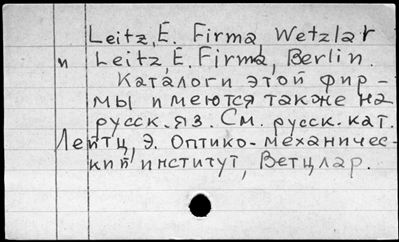 Leitz, E. Firma, Wetzlar
и Leitz, E. Firma, Berlin.
Каталоги этой фир-
мы имеются также на
русск. яз. См. русск. кат.
Лейтц, Э. Оптико-механичес-
кий институт, Ветцлар.